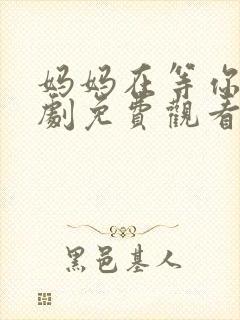 妈妈在等你
劇免費觀看
黑邑基人